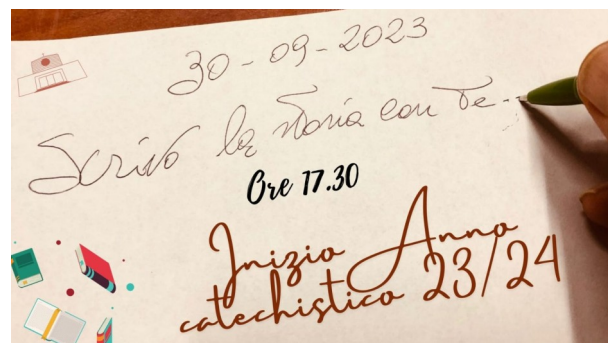 30-09-2023
Scrivo la storia con te...
Ore 17.30
Inizio Anno
catechistico 23/24